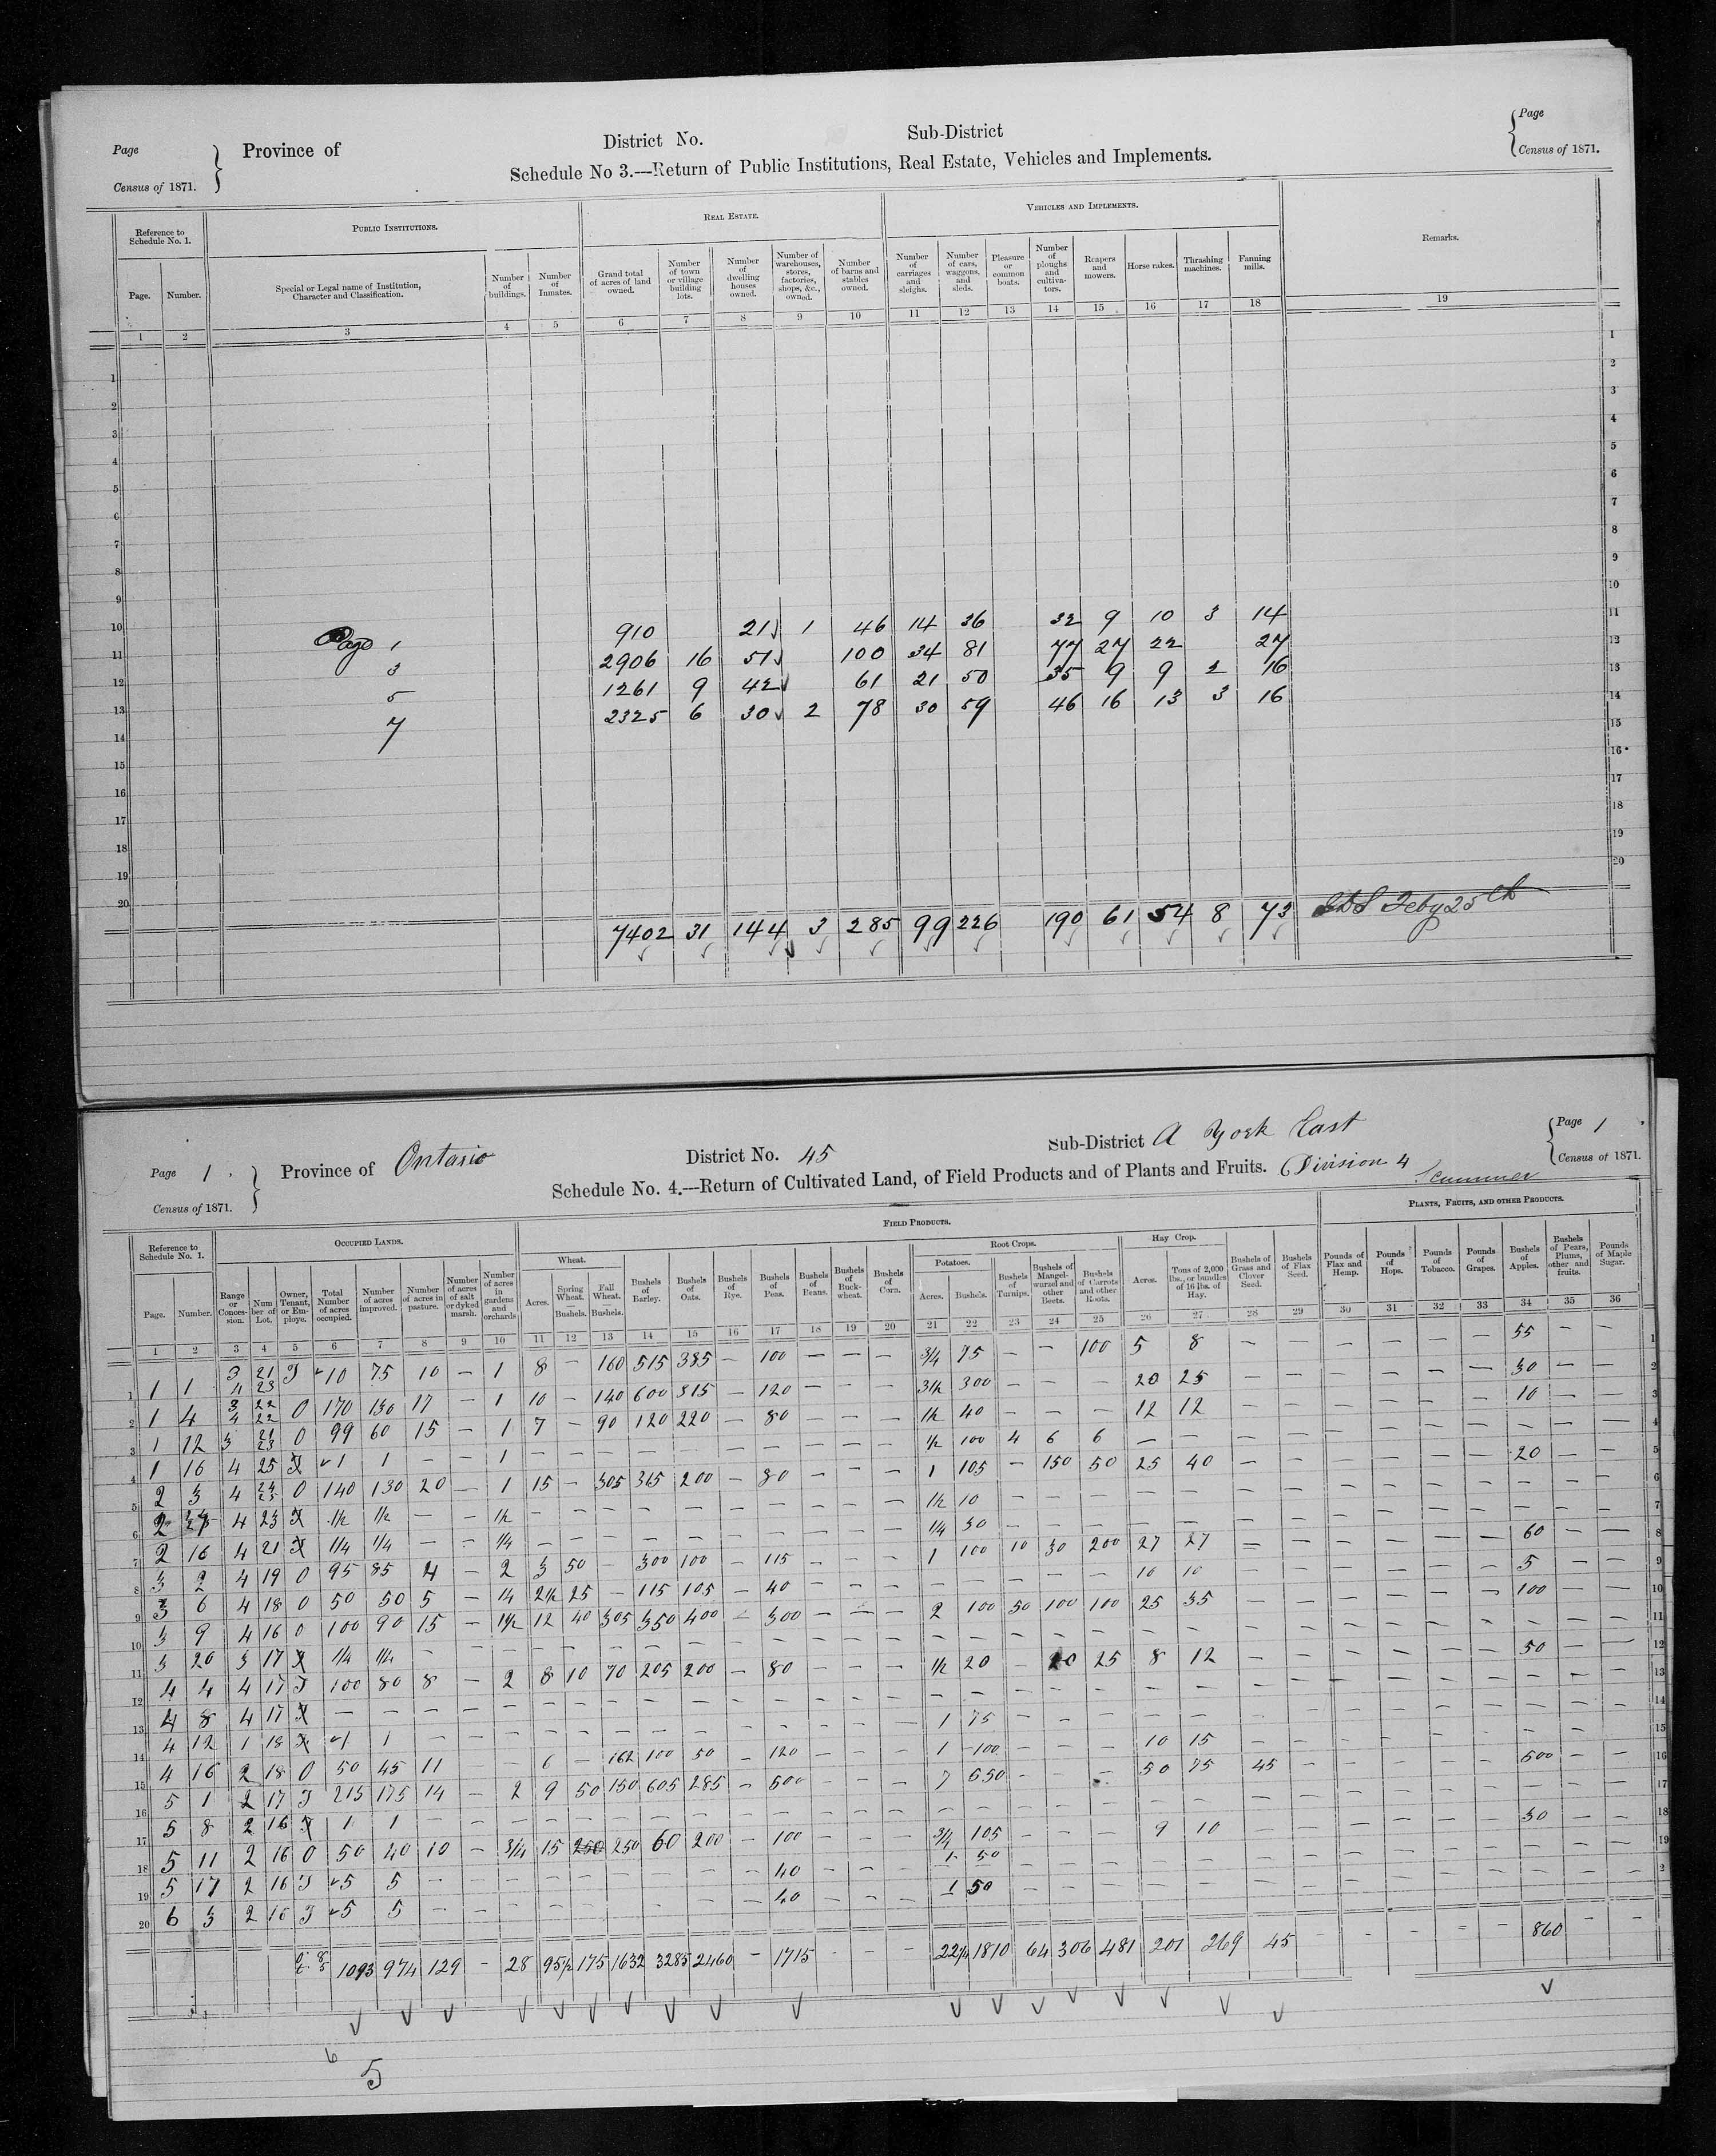 Page
Census of 1871.
Province of
District No.
Sub-District
Page
Census of 1871.
Schedule No 3.---Return of Public Institutions, Real Estate, Vehicles and Implements.
Reference to Schedule No. 1.
PUBLIC INSTITUTIONS.
REAL ESTATE.
VEHICLES AND IMPLEMENTS.
Remarks.
Page.
Number.
Special or Legal name of Institution, Character and Classification.
Number of buildings.
Number of Inmates.
Grand total of acres of land owned.
Number of town or village building lots.
Number of dwelling houses owned.
Number of warehouses, stores, factories, shops, &c., owned.
Number of barns and stables owned.
Number of carriages and sleighs.
Number of cars, waggons, and sleds.
Pleasure or common boats.
Number of ploughs and cultiva-tors.
Reapers and mowers.
Horse rakes.
Thrashing machines.
Fanning mills.
1 2 3 4 5 6 7 8 9 10 11 12 13 14 15 16 17 18 19
Page 1 910 21 1 46 14 36 32 9 10 3 14
3 2906 16 51 100 34 81 77 27 22 27
5 1261 9 42 61 21 50 35 9 9 2 16
7 2325 6 30 2 78 30 59 46 16 13 3 16
7402 31 144 3 285 99 226 190 61 54 8 73
Feby 25th
Page 1
Census of 1871.
Province of Ontario
District No. 45
Sub-District A York East
Page 1
Census of 1871.
Schedule No. 4.---Return of Cultivated Land, of Field Products and of Plants and Fruits. Division 4
Reference to Schedule No. 1.
OCCUPIED LANDS.
FIELD PRODUCTS.
PLANTS, FRUITS, AND OTHER PRODUCTS.
Wheat.
Root Crops.
Potatoes.
Hay Crop.
Page.
Number.
Range or Conces-sion.
Num ber of Lot.
Owner, Tenant, or Em-ploye.
Total Number of acres occupied.
Number of acres improved.
Number of acres in pasture.
Number of acres of salt or dyked marsh.
Number of acres in gardens and orchards
Acres.
Spring Wheat. — Bushels.
Fall Wheat. — Bushels.
Bushels of Barley.
Bushels of Oats.
Bushels of Rye.
Bushels of Peas.
Bushels of Beans.
Bushels of Buck-wheat.
Bushels of Corn.
Acres.
Bushels.
Bushels of Turnips.
Bushels of Mangel-wurzel and other Beets.
Bushels of Carrots and other Roots.
Acres.
Tons of 2,000 lbs., or bundles of 16 lbs. of Hay.
Bushels of Grass and Clover Seed.
Bushels of Flax Seed.
Pounds of Flax and Hemp.
Pounds of Hops.
Pounds of Tobacco.
Pounds of Grapes.
Bushels of Apples.
Bushels of Pears, Plums, other and fruits.
Pounds of Maple Sugar.
1 2 3 4 5 6 7 8 9 10 11 12 13 14 15 16 17 18 19 20 21 22 23 24 25 26 27 28 29 30 31 32 33 34 35 36
1 1 1 3 21 T 75 10 — 1 8 — 160 515 385 — 100 — — — 3/4 75 — — 100 5 8 — — — — — — 55 — —
2 1 4 3 22 4 22 O 170 130 17 — 1 10 — 140 600 315 — 120 — — — 3½ 300 — — — 20 25 — — — — — — 30 — —
3 1 12 3 21 23 O 99 60 15 — 1 7 — 90 120 220 — 80 — — — ½ 40 — — — 12 12 — — — — — — 10 — —
4 1 16 4 25 T 1 1 — — 1 — — — — — — — — — — ½ 100 4 6 6 — — — — — — — — — — —
5 2 3 4 O 140 130 20 — 1 15 — 305 365 200 — 80 — — — 1 105 — 150 50 25 40 — — — — — — 20 — —
6 2 4 23 T ½ ½ — — ½ — — — — — — — — — — ½ 10 — — — — —
7 2 16 4 21 T 1/4 1/4 — — 1/4 — — — — — — — — — — 1/4 30 — — — — —
8 3 2 4 19 O 95 85 4 — 2 3 50 — 300 100 — 115 — — — 1 100 10 30 200 27 27 — — — — — — 60 — —
9 3 6 4 18 O 50 50 5 — 1/4 2½ 25 — 115 105 — 40 — — — — — — — — 10 10 — — — — — — 5 — —
10 3 9 4 16 O 100 90 15 — 1½ 12 40 305 350 400 — 300 — — — 2 100 50 100 100 25 35 — — — — — — 100 — —
11 3 20 3 17 T 1/4 1/4 — — — — — — — — — — — — — — — — —
12 4 4 4 17 T 100 80 8 — 2 8 10 70 205 200 — 80 — — — ½ 20 — 20 25 8 12 — — — — — — 50 — —
13 4 8 4 17 T — — — — — — — — — — — — — — — — — —
14 4 12 1 18 T 1 1 — — — — — — — — — — — — — 1 75 — — — — —
15 4 16 2 18 O 50 45 11 — 6 — 162 100 50 — 120 — — — 1 100 — — — 10 15 — — — — — — — — —
16 5 1 2 17 T 215 175 14 — 2 9 50 150 605 285 — 600 — — — 7 650 — — — 50 75 45 — — — — — 500 — —
17 5 8 2 16 T 1 1 — — — — — — — — — — — — — — — — —
18 5 11 2 16 O 50 40 10 — 3/4 15 250 250 60 200 — 100 — — — 3/4 105 — — — 9 10 — — — — — — 30 — —
19 5 17 2 16 T 5 5 — — — — — — — — — 40 — — 1 50 — — — — —
20 6 3 2 16 T 5 5 — — — — — — — — — 40 — — — 1 50 — — — — —
1093 974 129 — 28 95½ 175 1632 3285 2460 — 1715 — — — 22¼ 1810 64 306 481 201 269 45 — — — — — 860 — —
6
5